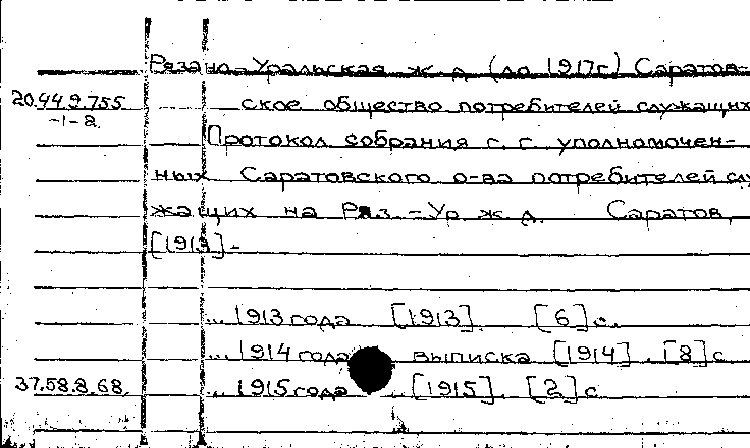 Рязано-Уральская ж. д. (до 1917г) Саратов-
20.44.9.755 ское общество потребителей служащих
-1-2 Протокол собрания г. г. уполномочен-
ных Саратовского о-ва потребителей слу-
жащих на Ряз.-Ур. ж. д. Саратов,
[1913]-
... 1913 года [1913]. [6] с.
... 1914 года выписка [1914]. [8] с
37.58.8.68. ... 1915 года .. [1915]. [2] с